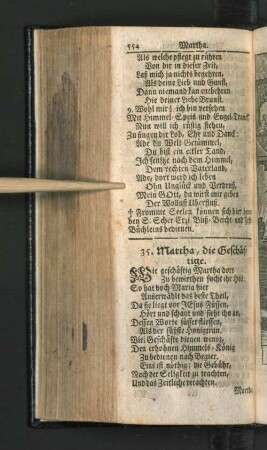 554 Martha.
Als welche pflegt zu rühren
Von dir in dieser Zeit,
Laß mich ja nichts begehren,
Als deine Lieb und Gunst,
Dann niemand kan entbehren
Hie deiner Liebe Brunst.
9. Wohl mir! ich bin versehen
Mit Himmel-Speis und Engel-Tranck
Nun will ich rüstig stehen,
Zu singen dir Lob, Ehr und Danck:
Ade du Welt-Getümmel,
Du bist ein eitler Tand,
Ich seuftze nach dem Himmel,
Dem rechten Vaterland,
Ade, dort werd ich leben
Ohn Unglück und Verdruß,
Mein GOtt, du wirst mir geben
Der Wollust Uberfluß.
† Fromme Seelen können sich hier
ben S. Scher Ertz. Buß- Beicht- und
Büchleins bedienen.
35. Martha, die Geschäf
tige.
Wie geschäftig Martha dort
Zu bewirthen sucht ihr
So hat doch Maria hier
Auserwählt das beste Theil,
Da sie liegt vor JEsus Füssen,
Hört und schaut und sieht ihn an,
Dessen Worte süsser fliessen,
Als der süßste Honigran.
Viel Geschäfte dienen wenig,
Den erhobnen Himmels-König
Zu bedienen nach Begier.
Eins ist nöthig: die Gebühr,
Nach der Seligkeit zu trachten,
Und das Zeitliche verachten.
Martha